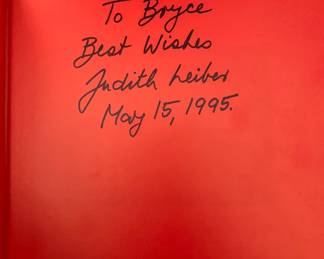 To Bryce
Best Wishes
Judith Leiber
May 15, 1995.